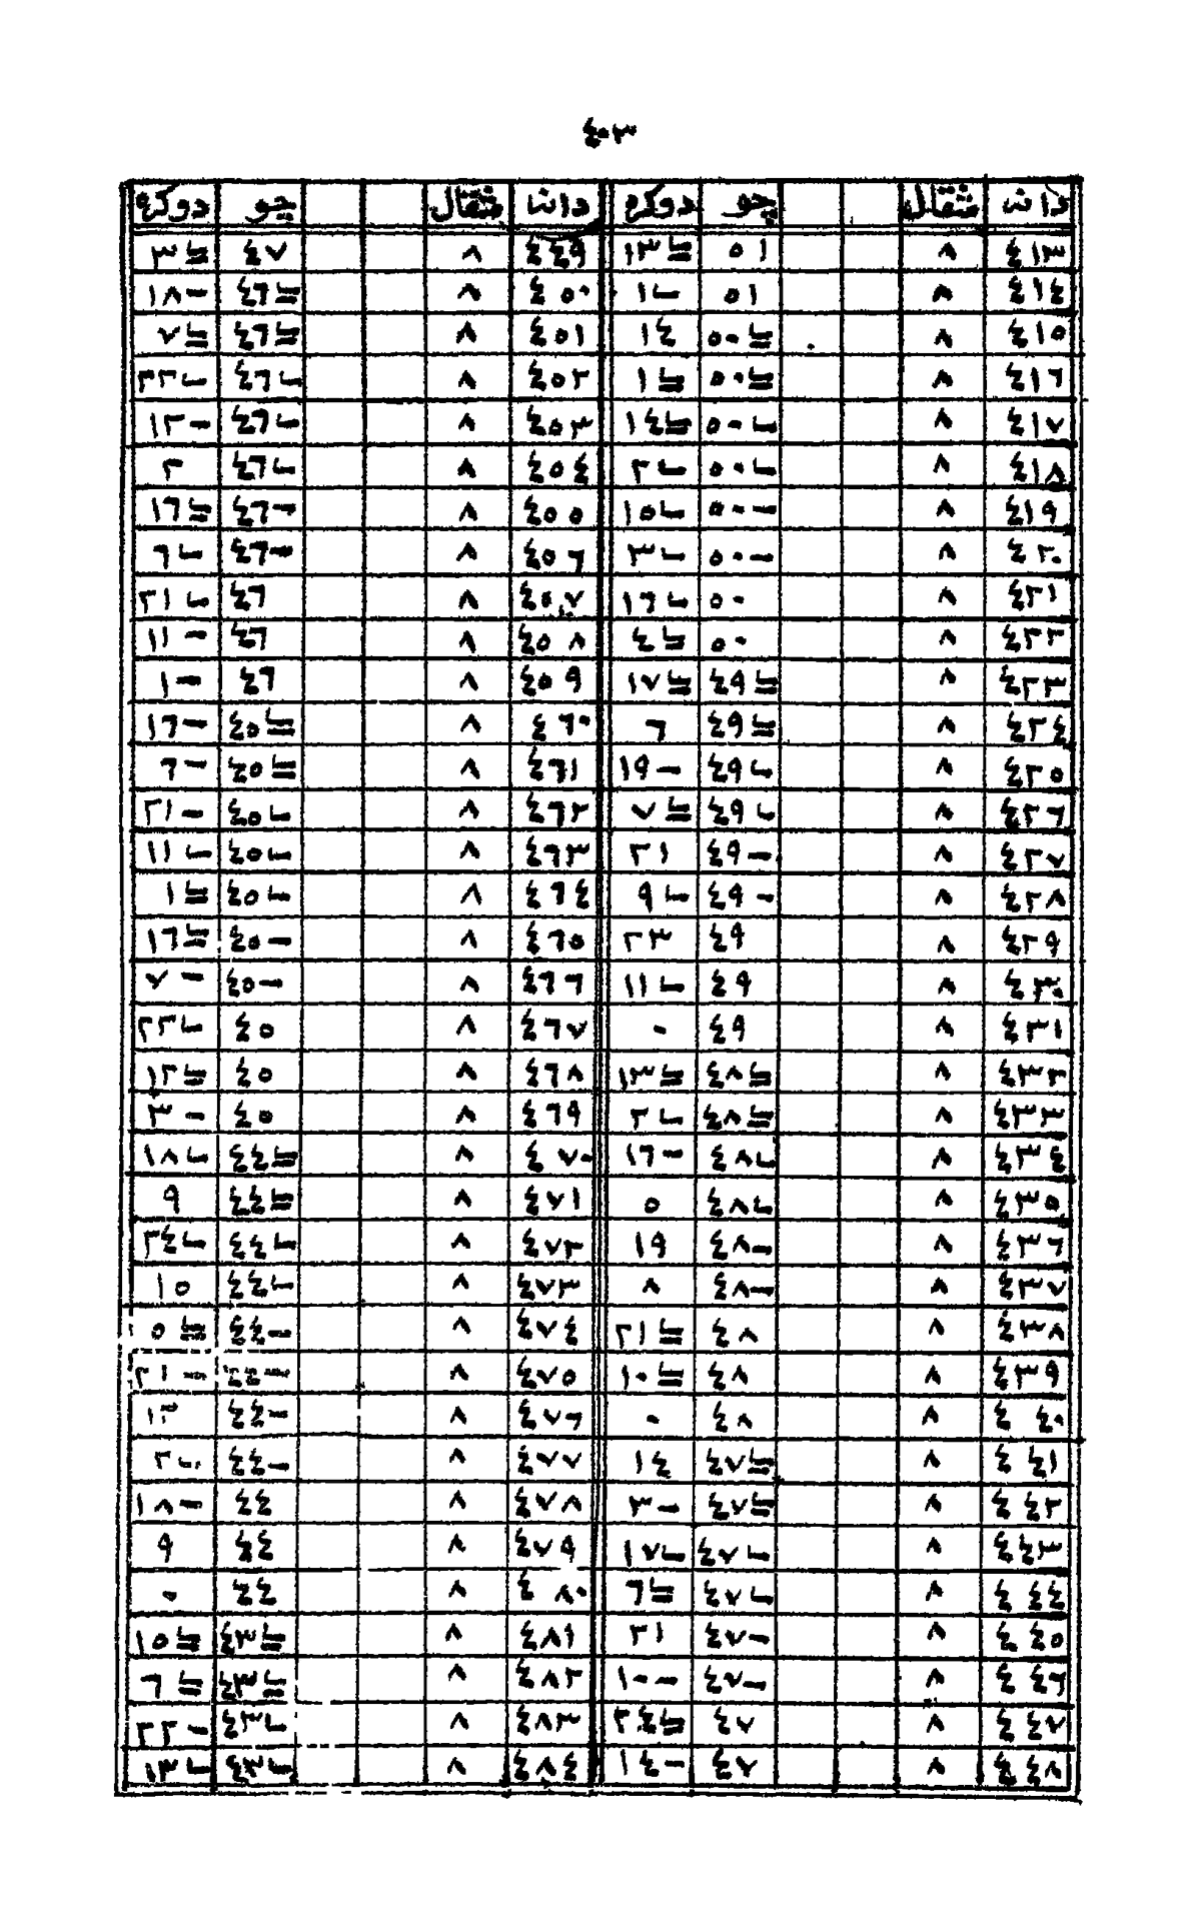 ٤٠٣
دانہ مثقال چو دوکرہ دانہ مثقال چو دوکرہ
٤١٣ ٨ ٥١ ١٣ ٤٤٩ ٨ ٤٧ ٣
٤١٤ ٨ ٥١ ١ ٤٥٠ ٨ ٤٦ ١٨
٤١٥ ٨ ٥٠ ١٤ ٤٥١ ٨ ٤٦ ٧
٤١٦ ٨ ٥٠ ١ ٤٥٢ ٨ ٤٦ ٢٢
٤١٧ ٨ ٥٠ ١٤ ٤٥٣ ٨ ٤٦ ١٢
٤١٨ ٨ ٥٠ ٢ ٤٥٤ ٨ ٤٦ ٢
٤١٩ ٨ ٥٠ ١٥ ٤٥٥ ٨ ٤٦ ١٦
٤٢٠ ٨ ٥٠ ٣ ٤٥٦ ٨ ٤٦ ٦
٤٢١ ٨ ٥٠ ١٦ ٤٥٧ ٨ ٤٦ ٢١
٤٢٢ ٨ ٥٠ ٤ ٤٥٨ ٨ ٤٦ ١١
٤٢٣ ٨ ٤٩ ١٧ ٤٥٩ ٨ ٤٦ ١
٤٢٤ ٨ ٤٩ ٦ ٤٦٠ ٨ ٤٥ ١٦
٤٢٥ ٨ ٤٩ ١٩ ٤٦١ ٨ ٤٥ ٦
٤٢٦ ٨ ٤٩ ٧ ٤٦٢ ٨ ٤٥ ٢١
٤٢٧ ٨ ٤٩ ٢١ ٤٦٣ ٨ ٤٥ ١١
٤٢٨ ٨ ٤٩ ٩ ٤٦٤ ٨ ٤٥ ١
٤٢٩ ٨ ٤٩ ٢٣ ٤٦٥ ٨ ٤٥ ١٦
٤٣٠ ٨ ٤٩ ١١ ٤٦٦ ٨ ٤٥ ٧
٤٣١ ٨ ٤٩ ٠ ٤٦٧ ٨ ٤٥ ٢٢
٤٣٢ ٨ ٤٨ ١٣ ٤٦٨ ٨ ٤٥ ١٢
٤٣٣ ٨ ٤٨ ٢ ٤٦٩ ٨ ٤٥ ٣
٤٣٤ ٨ ٤٨ ١٦ ٤٧٠ ٨ ٤٤ ١٨
٤٣٥ ٨ ٤٨ ٥ ٤٧١ ٨ ٤٤ ٩
٤٣٦ ٨ ٤٨ ١٩ ٤٧٢ ٨ ٤٤ ٢٤
٤٣٧ ٨ ٤٨ ٨ ٤٧٣ ٨ ٤٤ ١٥
٤٣٨ ٨ ٤٨ ٢١ ٤٧٤ ٨ ٤٤ ٥
٤٣٩ ٨ ٤٨ ١٠ ٤٧٥ ٨ ٤٤ ٢١
٤٤٠ ٨ ٤٨ ٠ ٤٧٦ ٨ ٤٤ ١٢
٤٤١ ٨ ٤٧ ١٤ ٤٧٧ ٨ ٤٤ ٢
٤٤٢ ٨ ٤٧ ٣ ٤٧٨ ٨ ٤٤ ١٨
٤٤٣ ٨ ٤٧ ١٧ ٤٧٩ ٨ ٤٤ ٩
٤٤٤ ٨ ٤٧ ٦ ٤٨٠ ٨ ٤٤ ٠
٤٤٥ ٨ ٤٧ ٢١ ٤٨١ ٨ ٤٣ ١٥
٤٤٦ ٨ ٤٧ ١٠ ٤٨٢ ٨ ٤٣ ٦
٤٤٧ ٨ ٤٧ ٢٤ ٤٨٣ ٨ ٤٣ ٢٢
٤٤٨ ٨ ٤٧ ١٤ ٤٨٤ ٨ ٤٣ ١٣